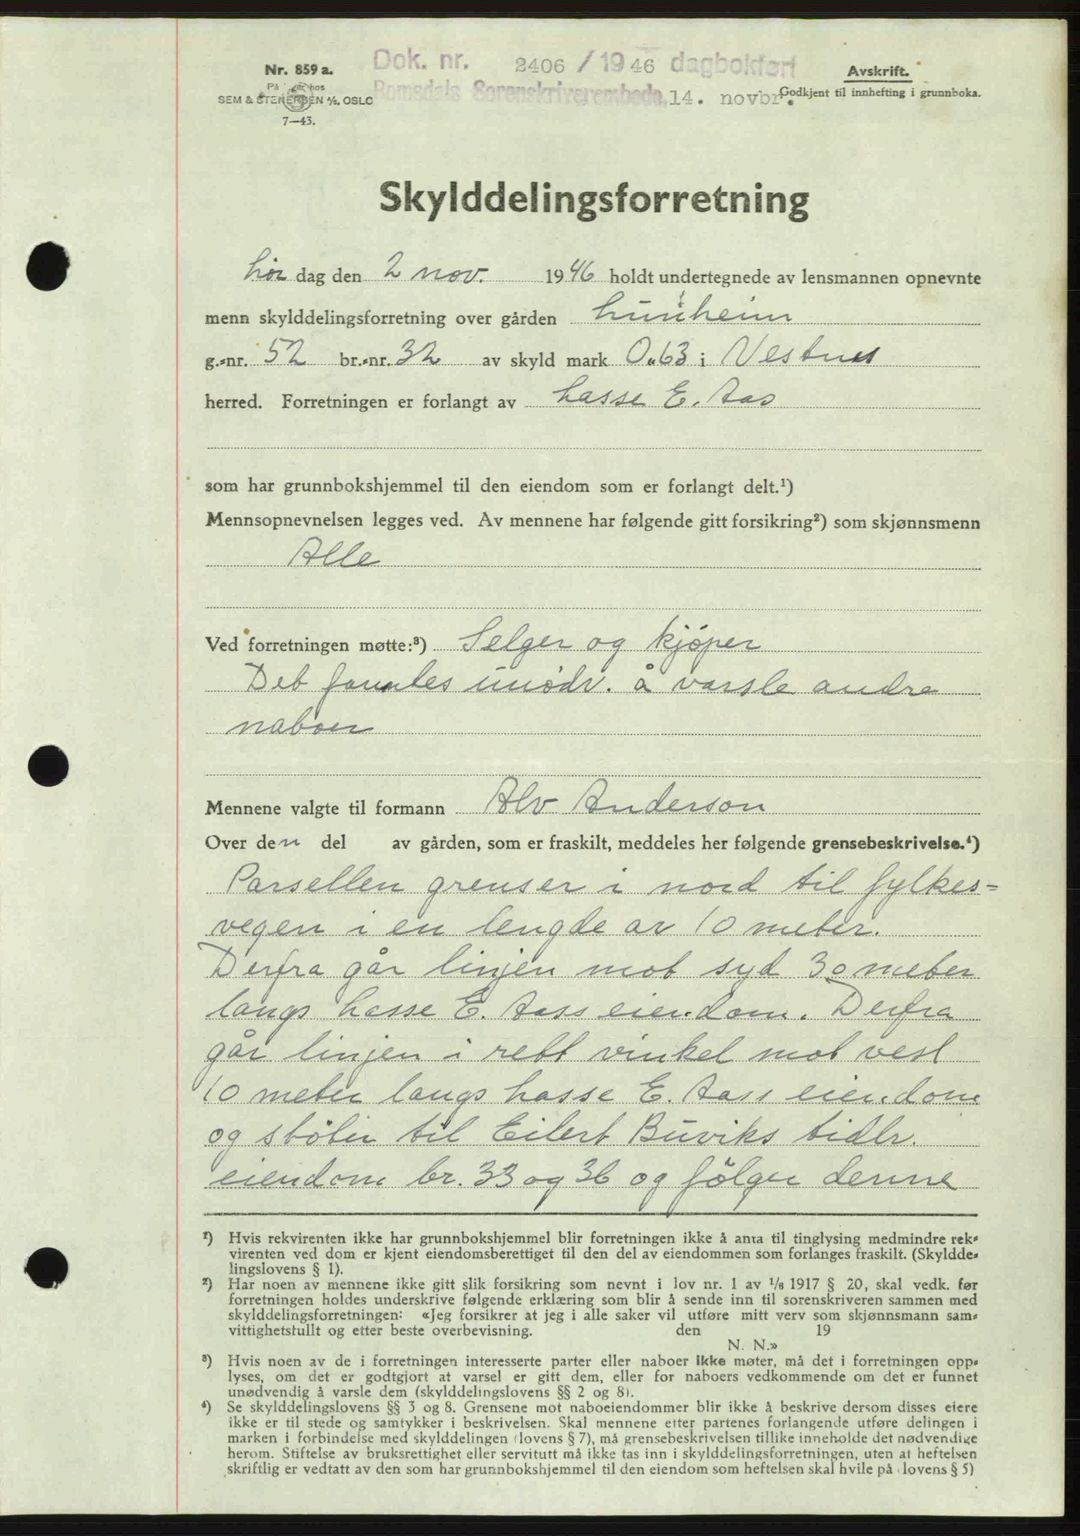 Nr. 859 a.
På hos
SEM & STENERSEN A/S, OSLO
7—43.
Dok. nr. 2406 / 19 46 dagbokført
Romsdals Sorenskriverembede, 14. novbr.
Avskrift.
Godkjent til innhefting i grunnboka.
Skylddelingsforretning
Lør dag den 2 nov. 19 46 holdt undertegnede av lensmannen opnevnte
menn skylddelingsforretning over gården Lunheim
g.-nr. 52 br.-nr. 32 av skyld mark 0.63 i Vestnes
herred. Forretningen er forlangt av Lasse E. Aas
som har grunnbokshjemmel til den eiendom som er forlangt delt.¹)
Mennsopnevnelsen legges ved. Av mennene har følgende gitt forsikring²) som skjønnsmenn
Alle
Ved forretningen møtte:³) Selger og kjøper
Det fantes unødv. å varsle andre
naboer
Mennene valgte til formann Alv Anderson
Over den del av gården, som er fraskilt, meddeles her følgende grensebeskrivelse.⁴)
Parsellen grenser i nord til fylkes=
vegen i en lengde av 10 meter.
Derfra går linjen mot syd 30 meter
langs Lasse E. Aass eiendom. Derfra
går linjen i rett vinkel mot vest
10 meter langs Lasse E. Aass eiendom
og støter til Eilert Buviks tidlr.
eiendom br. 33 og 36 og følger denne
¹) Hvis rekvirenten ikke har grunnbokshjemmel blir forretningen ikke å anta til tinglysing medmindre rek-
virenten ved dom er kjent eiendomsberettiget til den del av eiendommen som forlanges fraskilt. (Skyldde-
lingslovens § 1).
²) Har noen av mennene ikke gitt slik forsikring som nevnt i lov nr. 1 av ¹/₆ 1917 § 20, skal vedk. før
forretningen holdes underskrive følgende erklæring som blir å sende inn til sorenskriveren sammen med
skylddelingsforretningen: «Jeg forsikrer at jeg i alle saker vil utføre mitt verv som skjønnsmann sam-
vittighetsfullt og etter beste overbevisning. den 19
N. N.»
³) Hvis noen av de i forretningen interesserte parter eller naboer ikke møter, må det i forretningen opp-
lyses, om det er godtgjort at varsel er gitt dem, eller for naboers vedkommende om det er funnet
unødvendig å varsle dem (skylddelingslovens §§ 2 og 8).
⁴) Se skylddelingslovens §§ 3 og 8. Grensene mot naboeiendommer blir ikke å beskrive dersom disses eiere
ikke er til stede og samtykker i beskrivelsen. Skal mennene etter partenes forlangende utføre delingen i
marken i forbindelse med skylddelingen (lovens § 7), må grensebeskrivelsen tillike inneholde det nødvendige
herom. Stiftelse av bruksrettighet eller servitutt må ikke tas inn i skylddelingsforretningen, uten at heftelsen
skriftlig er vedtatt av den som har grunnbokshjemmel til den eiendom som heftelsen skal hvile på (lovens § 5)